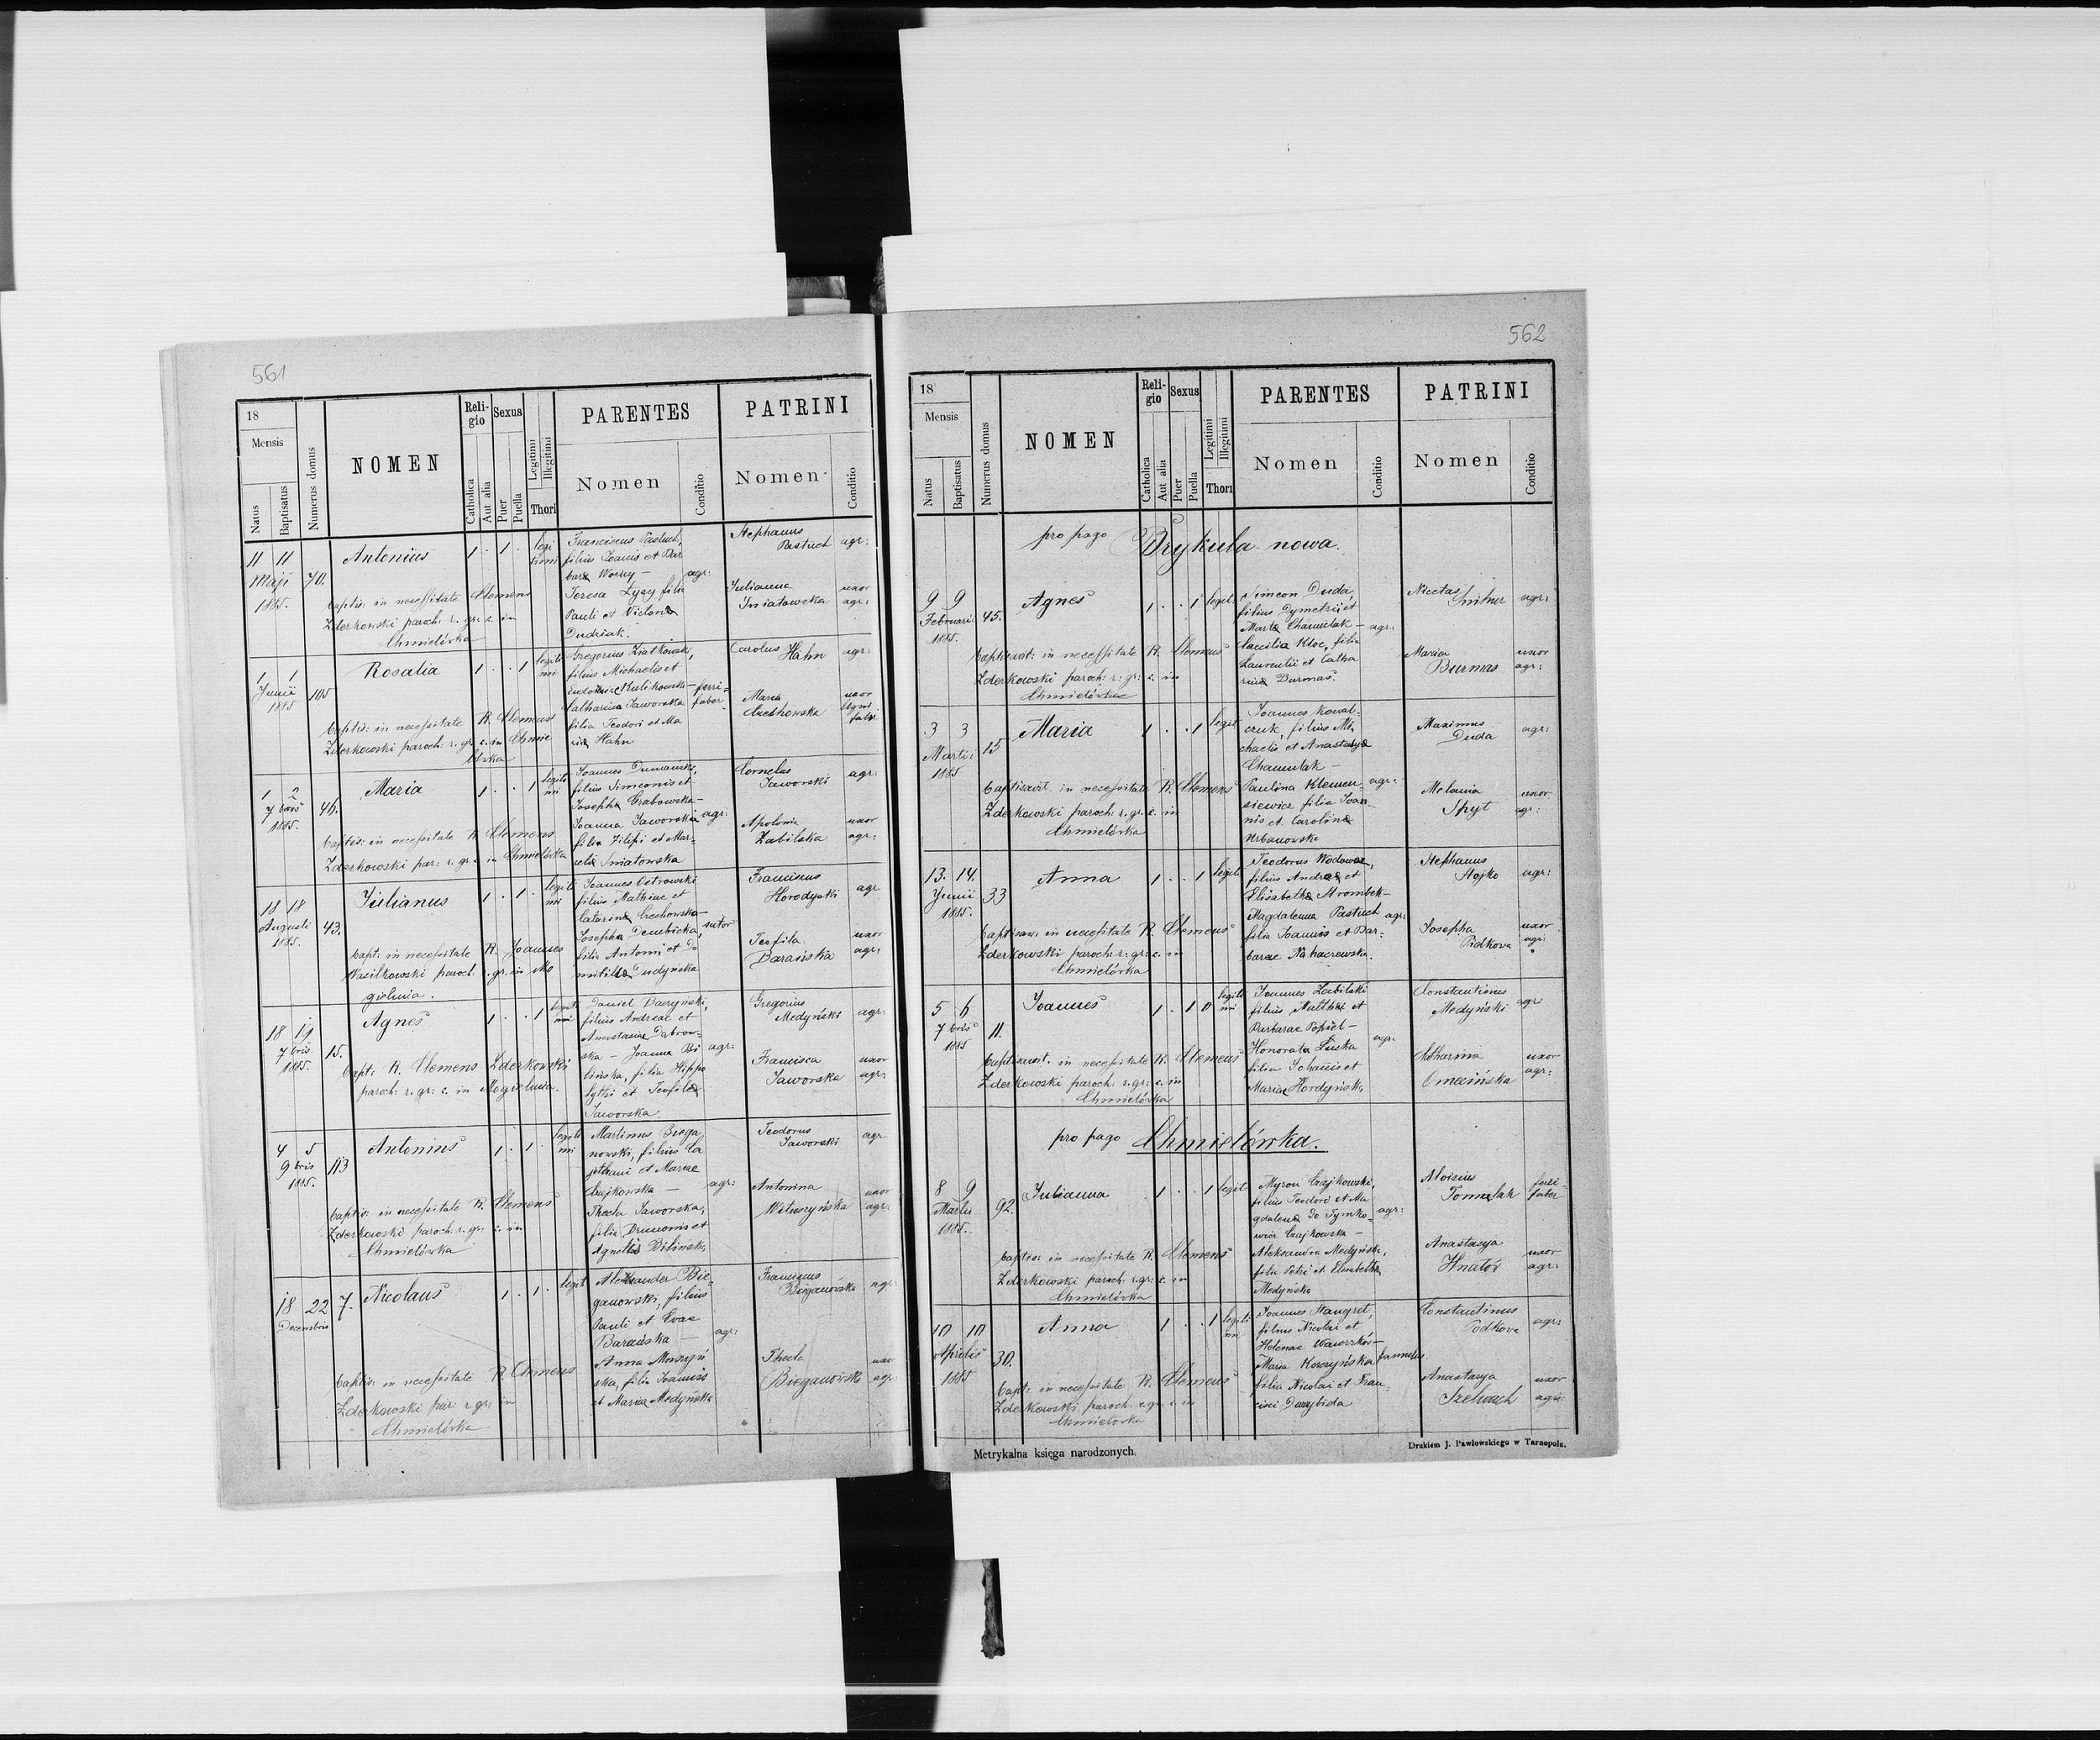 561
18
Mensis
Natus
Baptisatus
Numerus domus
NOMEN
Religio
Catholica
Aut alia
Sexus
Puer
Puella
Legitimi
Illegitimi
Thori
PARENTES
Nomen
Conditio
PATRINI
Nomen
Conditio
11 11
Maji 70.
1885.
Antonius
1 . 1 .
legi
timi
baptis: in necessitate Clemens
Zderkowski paroch: r. gr: c. in
Chmielówka
Franciscus Pastuch,
filius Joanis et Bar
barae
agr:
Teresa filia
Pauli et Victoria
Dudziak.
Stephanus
Pastuch agr:
Julianna uxor
Śniatowska agr:
1 1
Junii 105
1885
Rosalia
1 . . 1
legiti
mi
baptis: in necessitate R. Clemens
Zderkowski paroch: r. gr. c. in Chmie
lówka
Gregorius Ziatkowski,
filius Michaelis et
Kulikowska
Catharina Jaworska
filia Teodori et Ma
ria Hahn
ferri=
faber
Carolus Hahn agr:
Maria uxor
1 2
7 bris 46.
1885.
Maria
1 . . 1
legiti
mi
baptis: in necessitate R. Clemens
Zderkowski par: r. gr c in Chmielówka
Joannes
filius Simeonis et
Josepha Grabowska
Joanna Jaworska agr:
filia Filipi et Mar-
Śniatowska
Cornelus agr:
Jaworski
Apolonia uxor
Zabilska agr:
18 18
Augusti 43.
1885.
Julianus
1 . 1 .
legiti
mi
bapt: in necessitate R. Joannes
Wasilkowski paroch: r. gr. in Mo
gielnica.
Joannes Ostrowski
filius Mathiae et
Catarina Czechowska
sutor
Josepha Dembicka,
filia Antoni et Do
mitilla
Franciscus
Horodyski agr
Teofila uxor
Barańska agr:
18 19
7 bris 15.
1885.
Agnes
1 . . 1
legiti
mi
bapt: R. Clemens Zderkowski
paroch: r. gr: c. in Mogielnica.
Daniel
filius Andreae et
Anastasiae Dabrow-
ska - Joanna Bi
agr:
lińska, filia Hippo
lythi et Teofila
Jaworska
Gregorius
Medyński agr.
Francisca uxor
Jaworska agr:
4 5
9 bris 113
1885.
Antonius
1 . 1 .
legiti
mi
baptis: in necessitate R. Clemens
Zderkowski paroch: r. gr. c. in
Chmielówka
Martinus Biega
nowski, filius Ca
jethani et Mariae
Czajkowska
agr:
Thecla Jaworska,
filia et
Agnetis Bilińska
Teodorus
Jaworski agr
Antonina uxor
agr:
18 22 7.
Decembris
Nicolaus
1 . 1 .
legit
baptis: in necessitate R. Clemens
Zderkowski par: r. gr: in
Chmielówka
Aleksander Bie-
ganowski, filius
Pauli et Evae
Barańska
agr:
Anna
ska, filia Joannis
et Mariae Medyńska
Franciscus
Bieganowski agr:
Thecla uxor
Bieganowska agr:
562
18
Mensis
Natus
Baptisatus
Numerus domus
NOMEN
Religio
Catholica
Aut alia
Sexus
Puer
Puella
Legitimi
Illegitimi
Thori
PARENTES
Nomen
Conditio
PATRINI
Nomen
Conditio
pro pago Brykula nowa.
9 9
Februarii 45.
1885.
Agnes
1 . . 1
legit:
baptisavit: in necessitate R. Clemens
Zderkowski paroch: r. gr: c. in
Chmielówka
Simeon Duda,
filius Dymetrii et
Marta
agr:
Caecilia Kloc, filia
Laurentii et Catha
rina Burmas.
Nicetas agr:
Maria uxor
Burmas agr:
3 3
Martii 15
1885
Maria
1 . . 1
legit
baptisavit. in necessitate R. Clemens
Zderkowski paroch: r. gr: c. in
Chmielówka
Joannes Kowal-
czuk, filius Mi-
chaelis et Anastasya
Paulina Klemen- agr:
siewicz filia Joan-
nis et Carolina
Urbanowska
Maximus agr:
Duda
Melania uxor
Spyt agr:
13. 14.
Junii 33
1885.
Anna
1 . . 1
legit
baptisav: in necessitate R. Clemens
Zderkowski paroch: r. gr: c. in
Chmielówka
Teodorus
filius Andrae et
Elisabetha
Magdalena Pastuch agr:
filia Joannis et Bar-
barae
Stephanus
Hojko agr:
Josepha uxor
Pidkova agr:
5 6
7 bris 11.
1885
Joannes
1 . 1
legiti
mi
baptisavit. in necessitate R. Clemens
Zderkowski paroch: r. gr: c. in
Chmielówka
Joannes Zabilski
filius Matthei et
Barbarae Popiel
agr:
Honorata
filia Johanis et
Mariae Hordyńska
Constantinus
Medyński agr
Catharina uxor
agr:
pro pago Chmielówka.
8 9
Martii 92.
1885.
Julianna
1 . . 1
legit
baptis: in necessitate R. Clemens
Zderkowski paroch: r. gr: c. in
Chmielówka
Myron Czajkowski,
filius Teodori et Ma
gdalena de Tymko-
wicz Czajkowska
agr:
Aleksandra Medyńska,
filia Petri et Elisabetha
Medyńska
Aloisius ferri-
Tomulak faber
Anastasya
Hnatów uxor
agr:
10 10
Aprilis 30.
1885
Anna
1 . . 1
legiti
mi
bapt: in necessitate R. Clemens
Zderkowski paroch. r. gr c in
Chmielówka
Joannes Stangret,
filius Nicolai et
Helenae
Maria Korczyńska famulus.
filia Nicolai et Fran-
cisci
Constantinus
Podkova agr:
Anastasya uxor
agr:
Metrykalna księga narodzonych.
Drukiem J. Pawłowskiego w Tarnopolu.